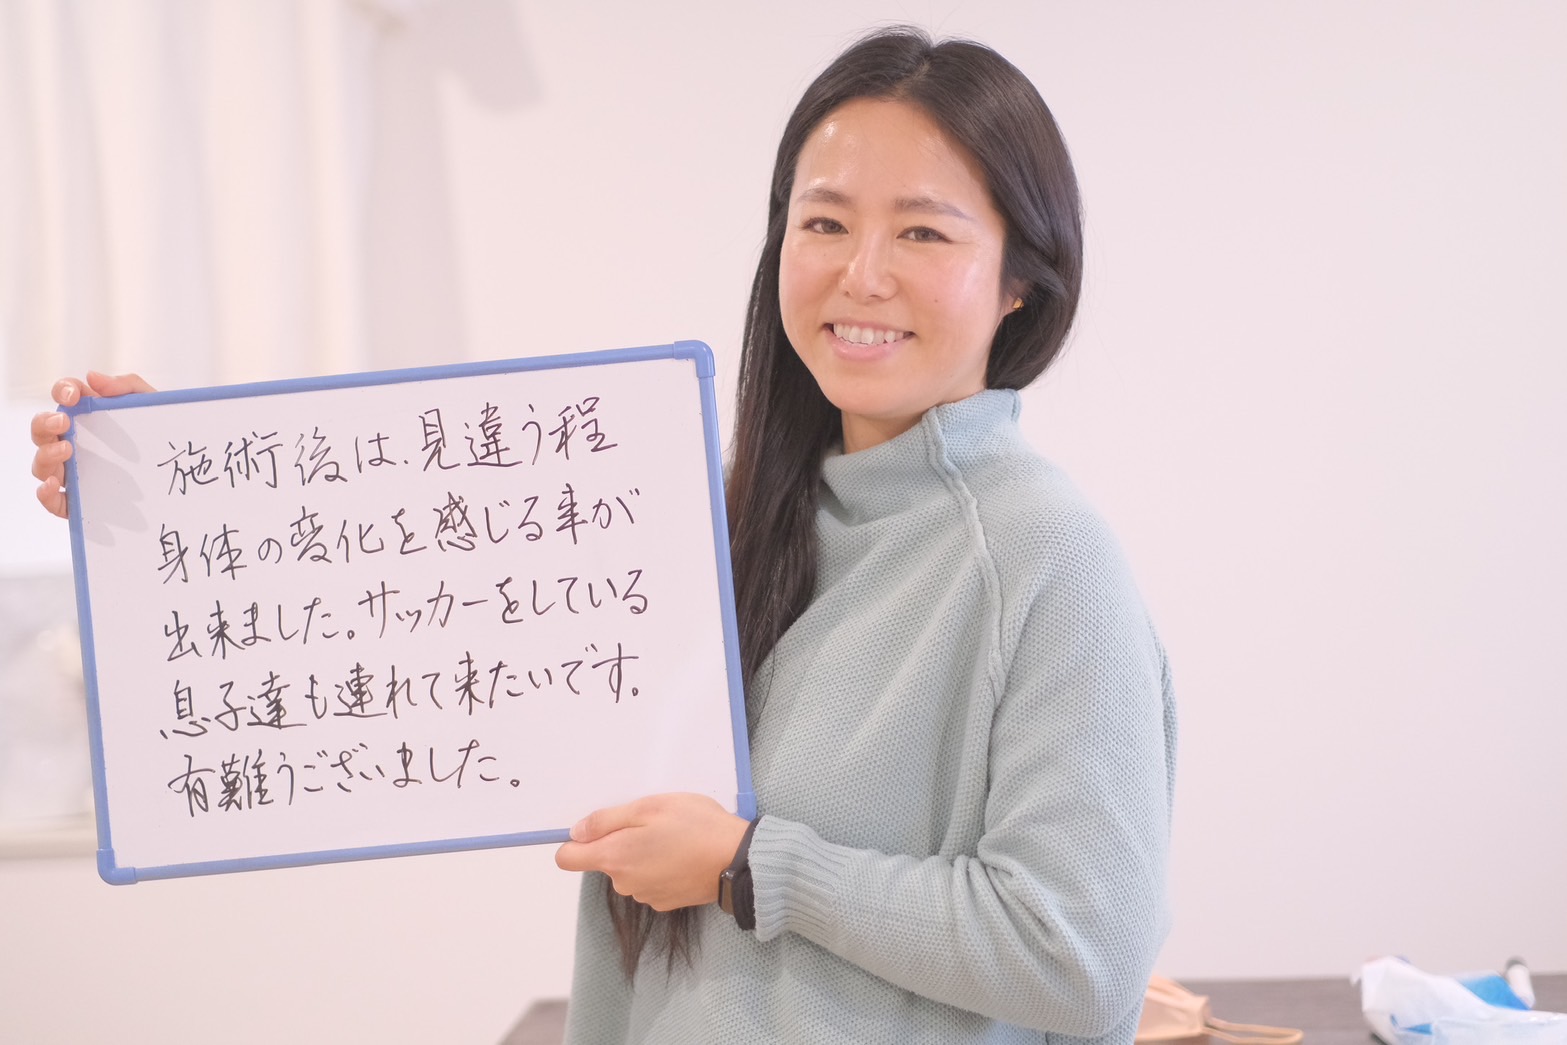 施術後は、見違う程
身体の変化を感じる事が
出来ました。サッカーをしている
息子達も連れて来たいです。
有難うございました。